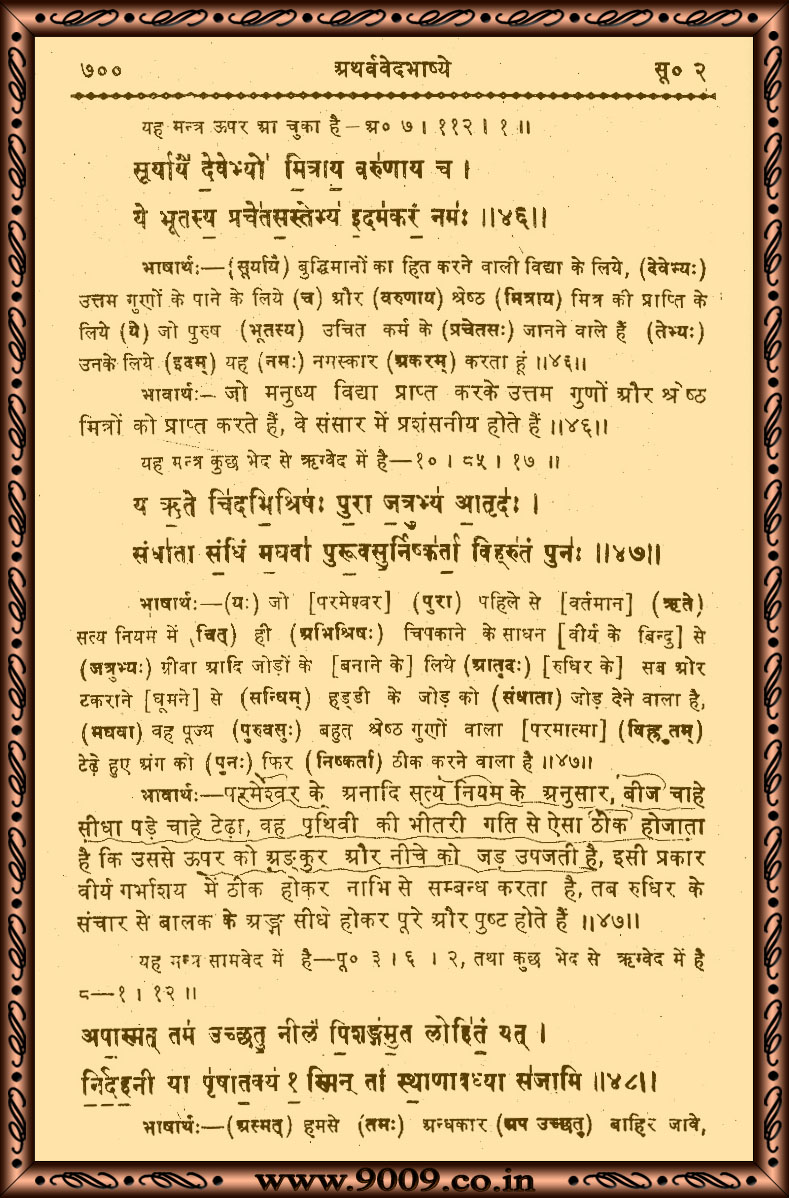 ७०० अथर्ववेदभाष्ये सू० २
यह मन्त्र ऊपर आ चुका है—अ० ७ । ११२ । १ ॥
सूर्यायै॑ दे॒वेभ्यो॑ मि॒त्राय॒ वरु॑णाय च ।
ये भू॒तस्य॒ प्रचे॑त॒स॒स्तेभ्य॑ इ॒दम॑करं॒ नमः॑ ॥४६॥
भाषार्थः—(सूर्यायै) बुद्धिमानों का हित करने वाली विद्या के लिये, (देवेभ्यः)
उत्तम गुणों के पाने के लिये (च) और (वरुणाय) श्रेष्ठ (मित्राय) मित्र की प्राप्ति के
लिये (ये) जो पुरुष (भूतस्य) उचित कर्म के (प्रचेतसः) जानने वाले हैं (तेभ्यः)
उनके लिये (इदम्) यह (नमः) नमस्कार (अकरम्) करता हूं ॥४६॥
भावार्थः—जो मनुष्य विद्या प्राप्त करके उत्तम गुणों और श्रेष्ठ
मित्रों को प्राप्त करते हैं, वे संसार में प्रशंसनीय होते हैं ॥४६॥
यह मन्त्र कुछ भेद से ऋग्वेद में है—१० । ८५ । १७ ॥
य ऋ॒ते चि॑दभि॒श्रिषः॑ पु॒रा ज॒त्रुभ्य॑ आ॒तृदः॑ ।
संधा॑ता सं॒धिं म॒घवा॑ पुरू॒वसु॒र्निष्क॑र्ता॒ विह्रु॑तं॒ पुनः॑ ॥४७॥
भाषार्थः—(यः) जो [परमेश्वर] (पुरा) पहिले से [वर्तमान] (ऋते)
सत्य नियम में (चित्) ही (अभिश्रिषः) चिपकाने के साधन [वीर्य के बिन्दु] से
(जत्रुभ्यः) ग्रीवा आदि जोड़ों के [बनाने के] लिये (आतृदः) [रुधिर के] सब ओर
टकराने [घूमने] से (सन्धिम्) हड्डी के जोड़ को (संधाता) जोड़ देने वाला है,
(मघवा) वह पूज्य (पुरुवसुः) बहुत श्रेष्ठ गुणों वाला [परमात्मा] (विह्रुतम्)
टेढ़े हुए अंग को (पुनः) फिर (निष्कर्ता) ठीक करने वाला है ॥४७॥
भावार्थः—परमेश्वर के अनादि सत्य नियम के अनुसार, बीज चाहे
सीधा पड़े चाहे टेढ़ा, वह पृथिवी की भीतरी गति से ऐसा ठीक होजाता
है कि उससे ऊपर को अङ्कुर और नीचे को जड़ उपजती है, इसी प्रकार
वीर्य गर्भाशय में ठीक होकर नाभि से सम्बन्ध करता है, तब रुधिर के
संचार से बालक के अङ्ग सीधे होकर पूरे और पुष्ट होते हैं ॥४७॥
यह मन्त्र सामवेद में है—पू० ३ । ६ । २, तथा कुछ भेद से ऋग्वेद में है
८—१ । १२ ॥
अपा॒स्मत् तम॑ उच्छतु॒ नीलं॑ पि॒शङ्ग॑मु॒त लोहि॑तं॒ यत् ।
नि॒र्द॒ह॒नी या पृ॑षात॒क्य॑१॒स्मिन् तां स्था॒णावध्या स॑जामि ॥४८॥
भाषार्थः—(अस्मत्) हमसे (तमः) अन्धकार (अप उच्छतु) बाहिर जावे,
www.9009.co.in